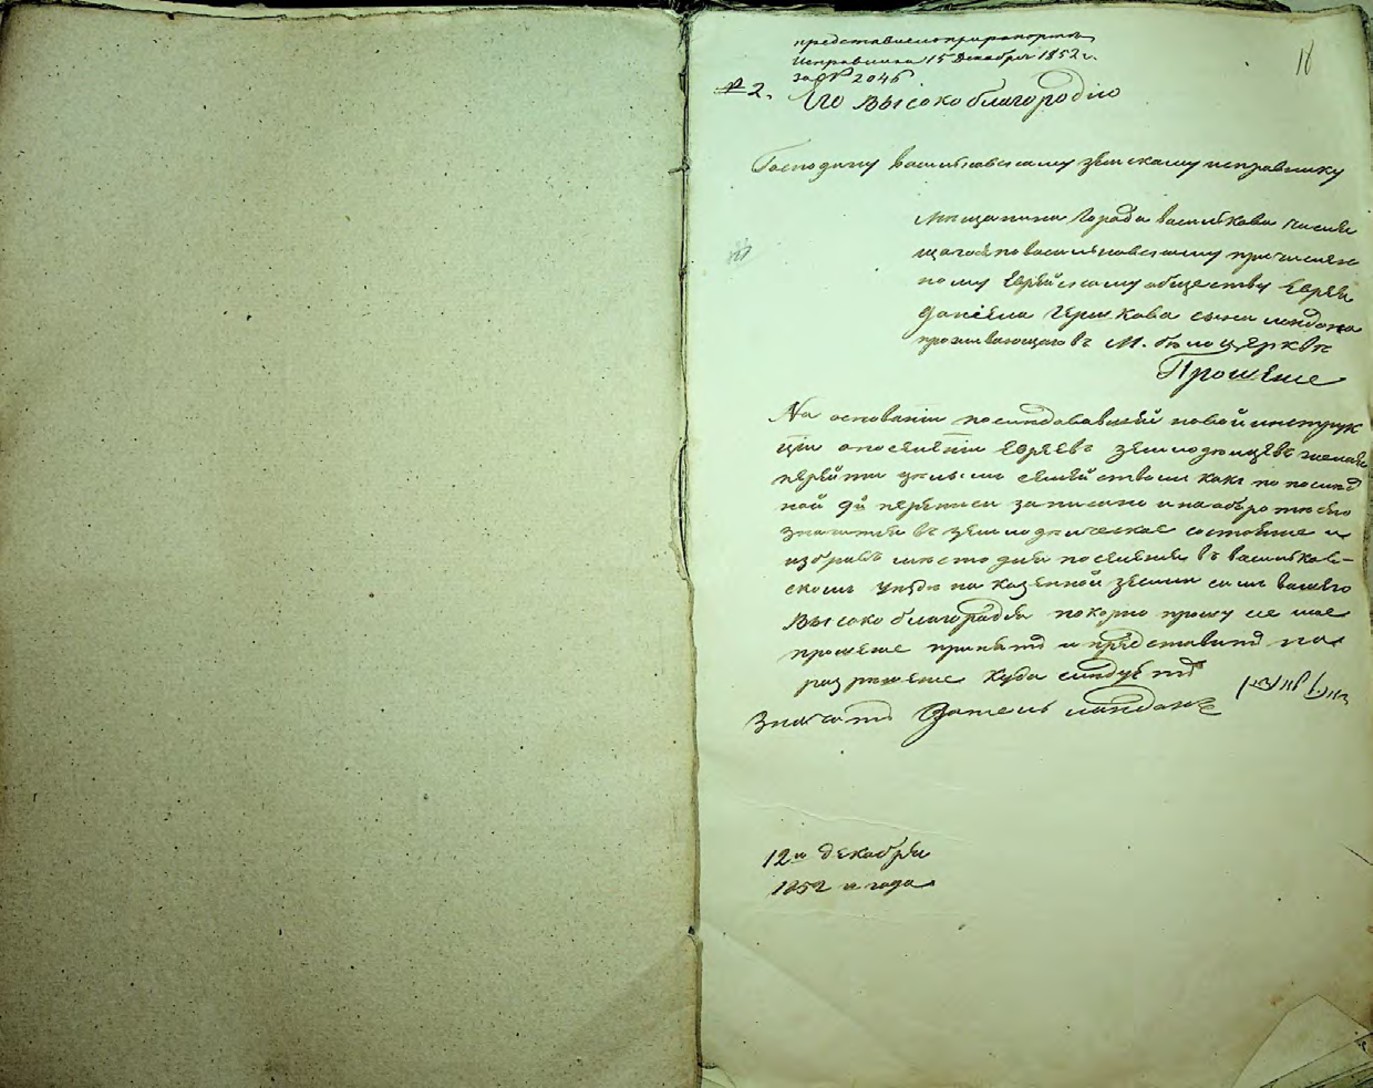 представлено при рапорте
Исправника 15 Декабря 1852 г.
за № 2046
18
№ 2. Его высокоблагородию
Господину васильковскому земскому исправнику
мещанина города василькова числя
щагося по васильковскому причислен
ному Еврейскому обществу Еврея
Герш кова сына ландона
проживающаго въ М. белоцерквѣ
Прошенiе
На основанiи последовавшей новой инструк
цiи о поселенiи Евреевъ земледельцевъ желая
перейти целымъ семействомъ какъ по послед
ной 9й переписи записано и на обороте сего
значится въ земледельческое состоянiе и
избравъ место для поселенiя въ васильков-
скомъ уезде на казенной земли симъ вашего
высокоблагородiя покорно прошу сiе мое
прошенiе принять и представить на
разрешенiе куда следуетъ
ландонъ
12го декабря
1852 го года